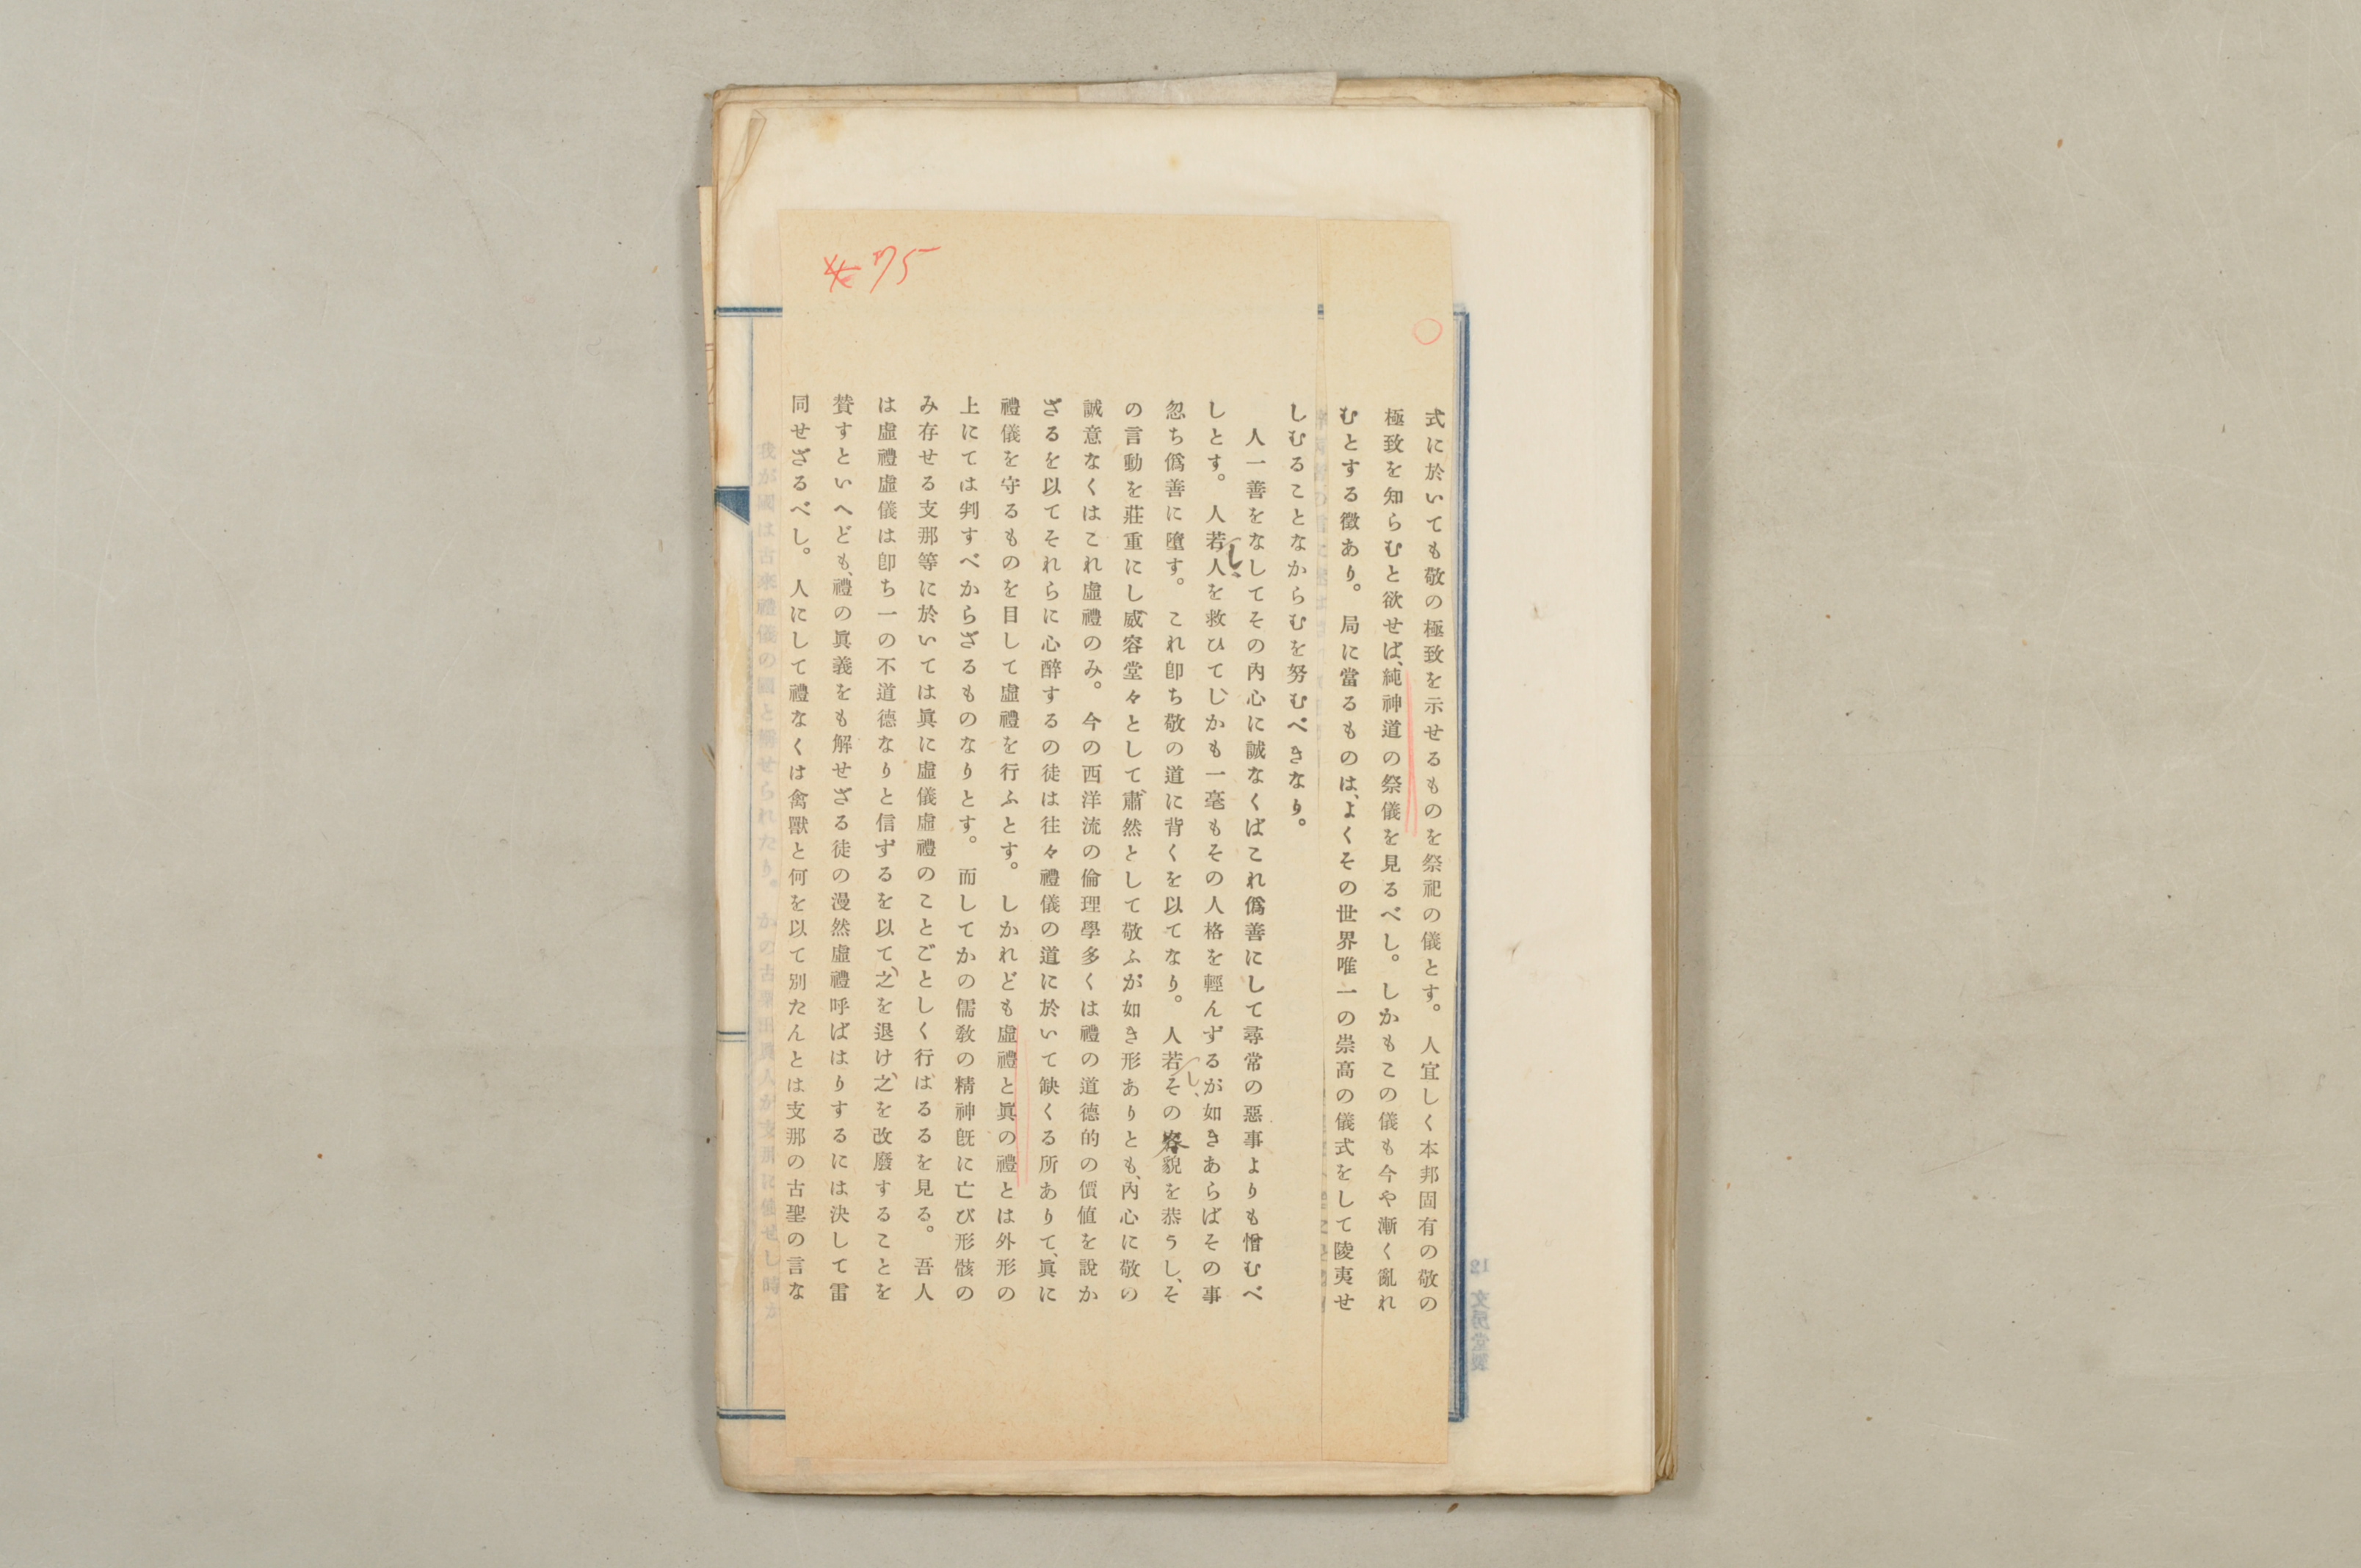 式に於いても敬の極致を示せるものを祭祀の儀とす。人宜しく本邦固有の敬の
極致を知らむと欲せば、純神道の祭儀を見るべし。しかもこの儀も今や漸く亂れ
むとする徵あり。局に當るものは、よくその世界唯一の崇高の儀式をして陵夷せ
しむることなからむを努むべきなり。
人一善をなしてその內心に誠なくばこれ僞善にして尋常の惡事よりも憎むべ
しとす。人若し、人を救ひてしかも一毫もその人格を輕んずるが如きあらばその事
忽ち僞善に墮す。これ卽ち敬の道に背くを以てなり。人若し、その容貌を恭うし、そ
の言動を莊重にし威容堂々として肅然として敬ふが如き形ありとも、內心に敬の
誠意なくはこれ虛禮のみ。今の西洋流の倫理學多くは禮の道德的の價値を說か
ざるを以てそれらに心醉するの徒は往々禮儀の道に於いて缺くる所ありて、眞に
禮儀を守るものを目して虛禮を行ふとす。しかれども虛禮と眞の禮とは外形の
上にては判すべからざるものなりとす。而してかの儒敎の精神旣に亡び形骸の
み存せる支那等に於いては眞に虛儀虛禮のことごとしく行はるるを見る。吾人
は虛禮虛儀は卽ち一の不道德なりと信ずるを以て之を退け、之を改廢することを
贊すといへども、禮の眞義をも解せざる徒の漫然虛禮呼ばはりするには決して雷
同せざるべし。人にして禮なくは禽獸と何を以て別たんとは支那の古聖の言な
75
12 文房堂製